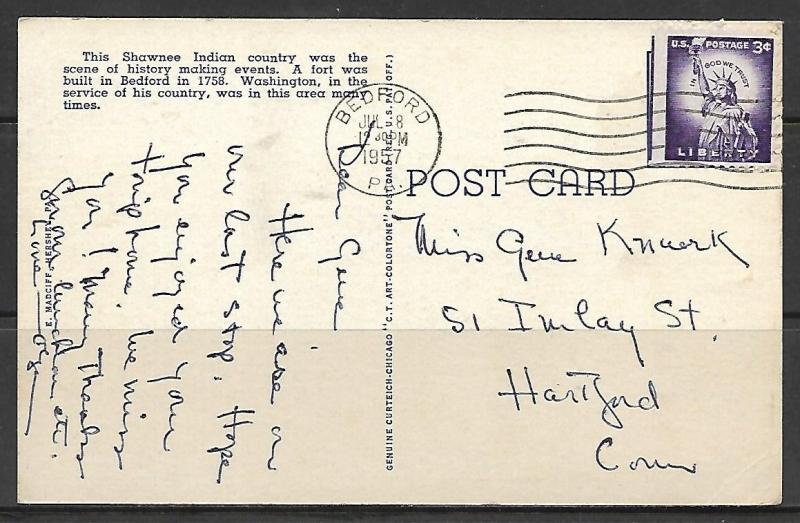 This Shawnee Indian country was the
scene of history making events. A fort was
built in Bedford in 1758. Washington, in the
service of his country, was in this area many
times.
Dear Gene
Here we are on
our last stop. Hope
you enjoyed your
trip home. We miss
you! Many thanks
for our luncheon etc.
Love
E. MADCIFF, HERSHEY, PA.
GENUINE CURTEICH-CHICAGO "C.T. ART-COLORTONE" POST CARD (REG. U.S. PAT. OFF.)
BEDFORD
JUL 8
12 30 PM
1957
PA.
U.S. POSTAGE 3¢
IN GOD WE TRUST
LIBERTY
POST CARD
Miss Gene
51 Imlay St.
Hartford
Conn